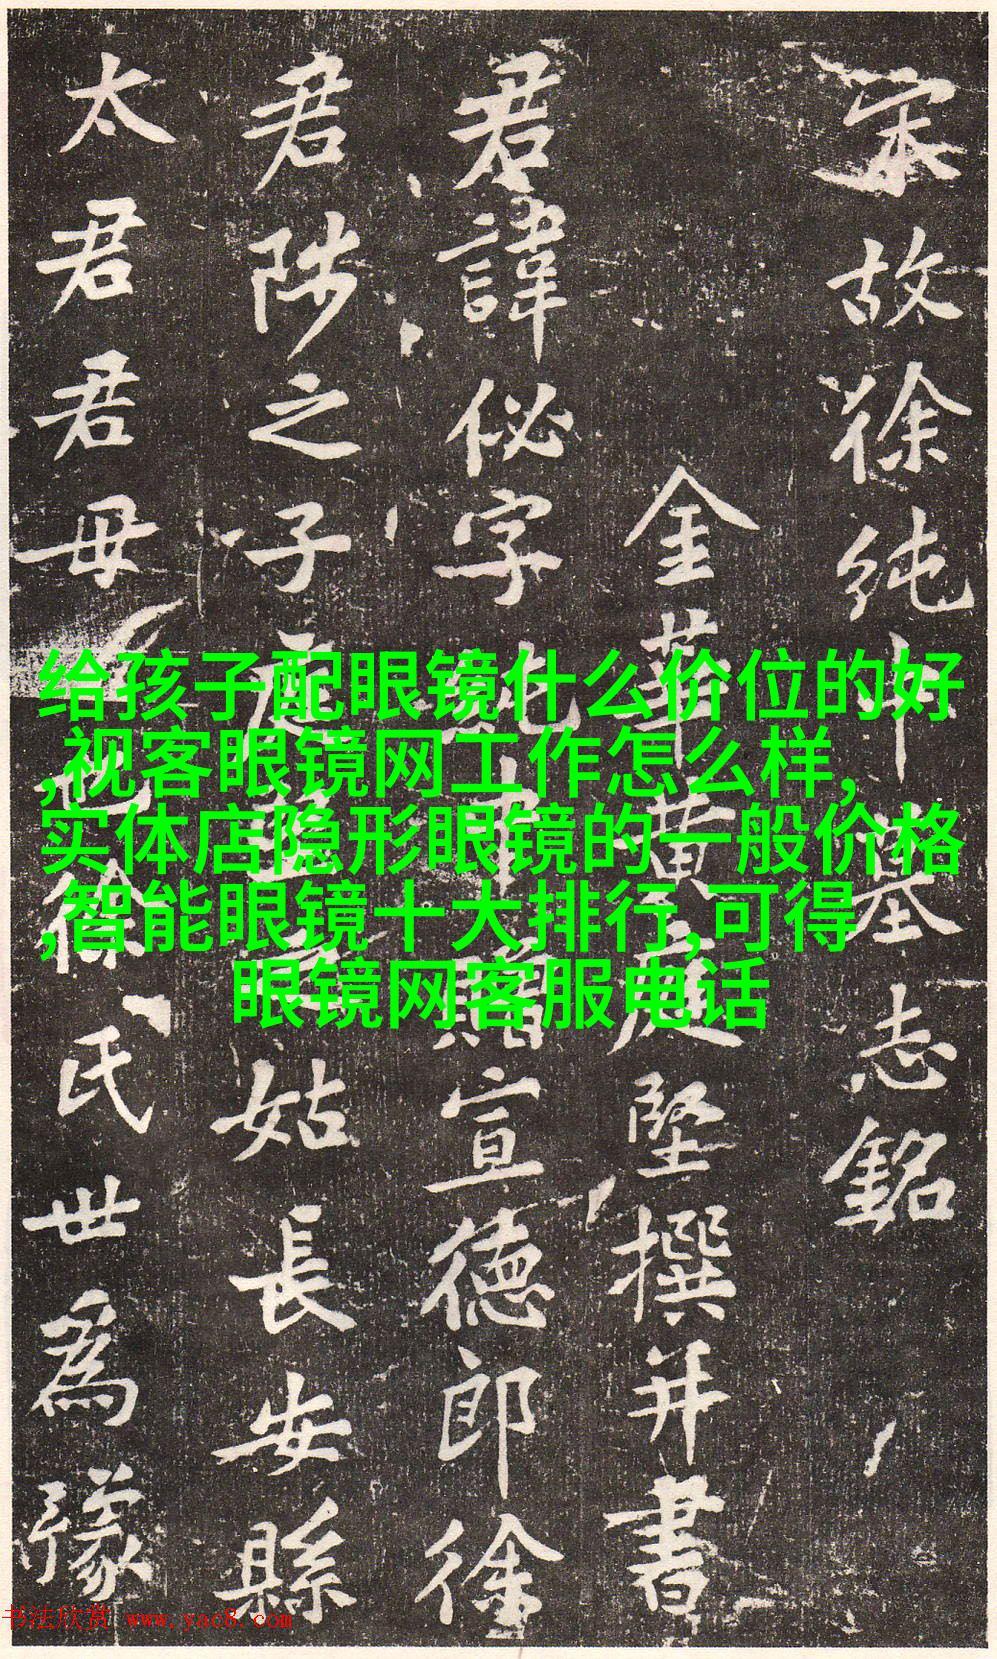 宋故徐純中墓志銘
金華黄庭堅撰并書
君諱佖字純中贈宣德郎徐
君陟之子姑長安縣
太君君母徐氏世為豫
给孩子配眼镜什么价位的好
,视客眼镜网工作怎么样,
实体店隐形眼镜的一般价格
,智能眼镜十大排行,可得
眼镜网客服电话
书法欣赏 www.yac8.com